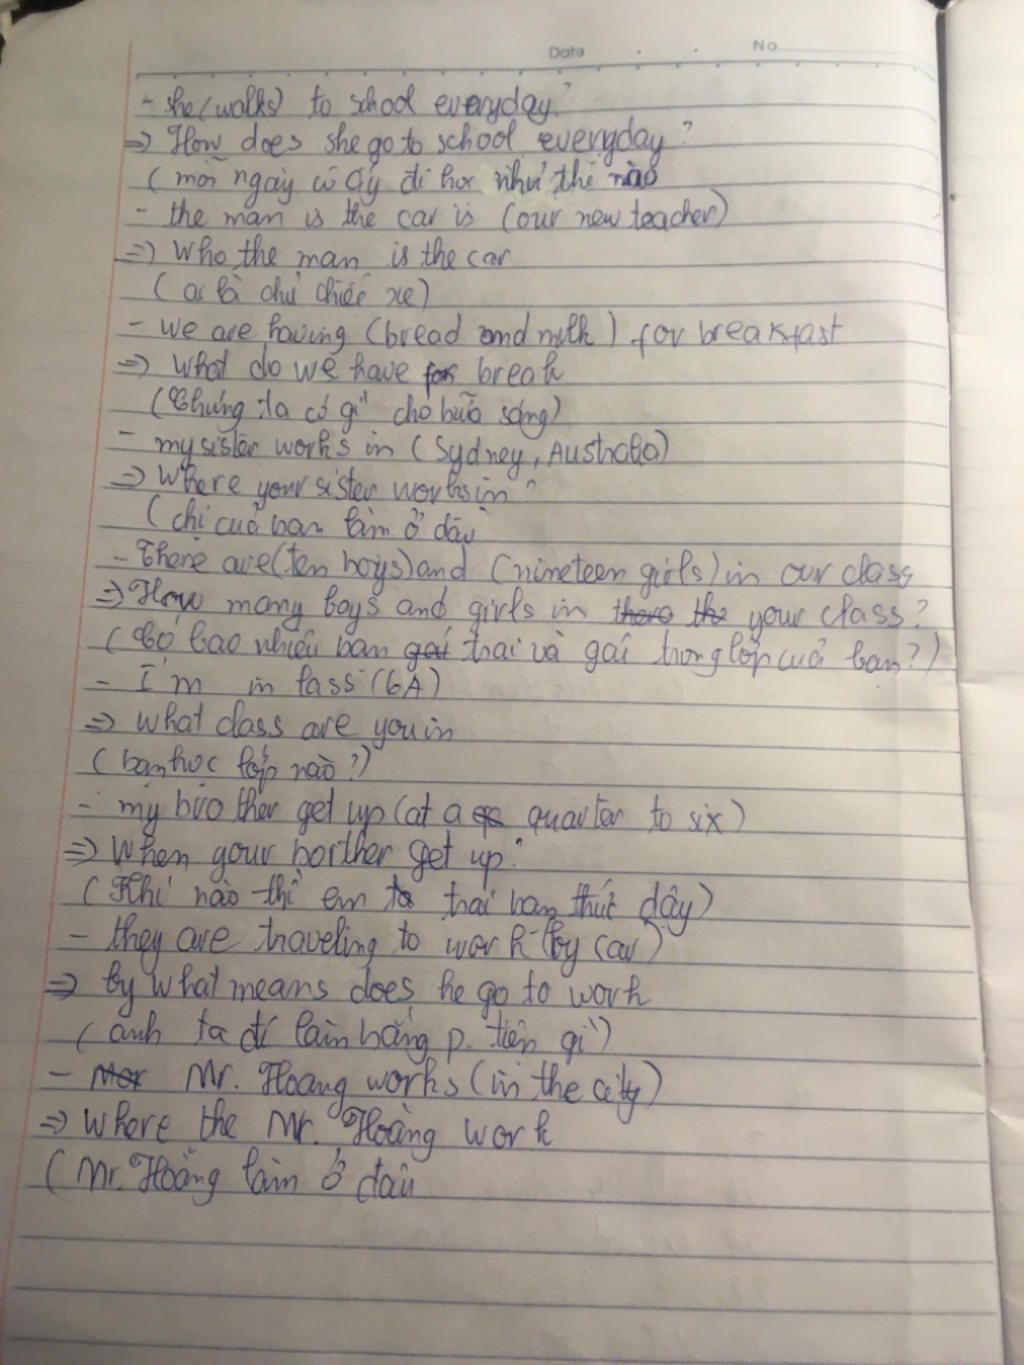 Date No
- she (walks) to school everyday?
=> How does she go to school everyday?
(mỗi ngày cô ấy đi học như thế nào
- the man is the car is (our new teacher)
=> Who the man is the car
(ai là chủ chiếc xe)
- we are having (bread and milk) for breakfast
=> what do we have for break
(Chúng ta có gì cho bữa sáng)
- my sister works in (Sydney, Australia)
=> Where your sister works in?
(chị cuả bạn làm ở đâu
- There are (ten boys) and (nineteen girls) in our class
=> How many boys and girls in there the your class?
(Có bao nhiêu bạn gái trai và gái trong lớp cuả bạn?)
- I'm in lass (6A)
=> what class are you in
(bạn học lớp nào?)
- my brother get up (at a quarter to six)
=> When your borther get up?
(Khi nào thì em trai bạn thức dậy)
- they are traveling to work (by car)
=> by what means does he go to work
(anh ta đi làm bằng p. tiện gì)
- Mr. Hoang works (in the city)
=> where the Mr. Hoàng work
(Mr. Hoàng làm ở đâu